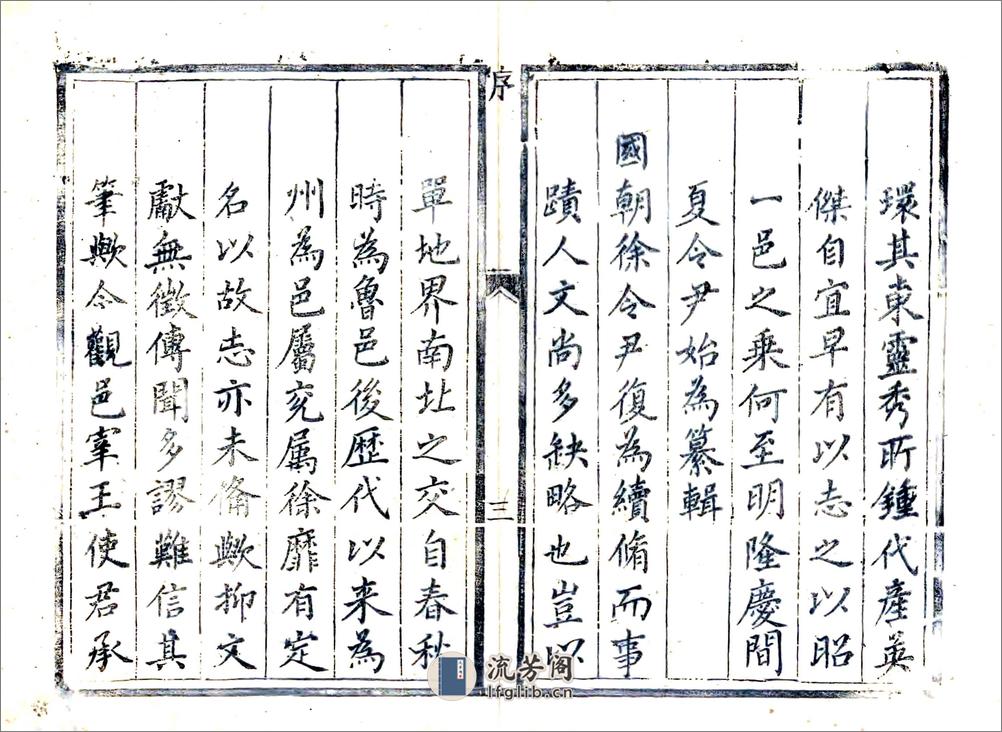 環其東靈秀所鍾代產英
傑自宜早有以志之以昭
一邑之乗何至明隆慶間
夏令尹始為纂輯
國朝徐令尹復為續脩而事
蹟人文尚多缺略也豈以
序
三
單地界南北之交自春秋
時為魯邑後歷代以来為
州為邑屬兗属徐靡有定
名以故志亦未備歟抑文
獻無徵傳聞多謬難信其
筆歟今觀邑宰王使君承
流芳阁
lfglib.cn